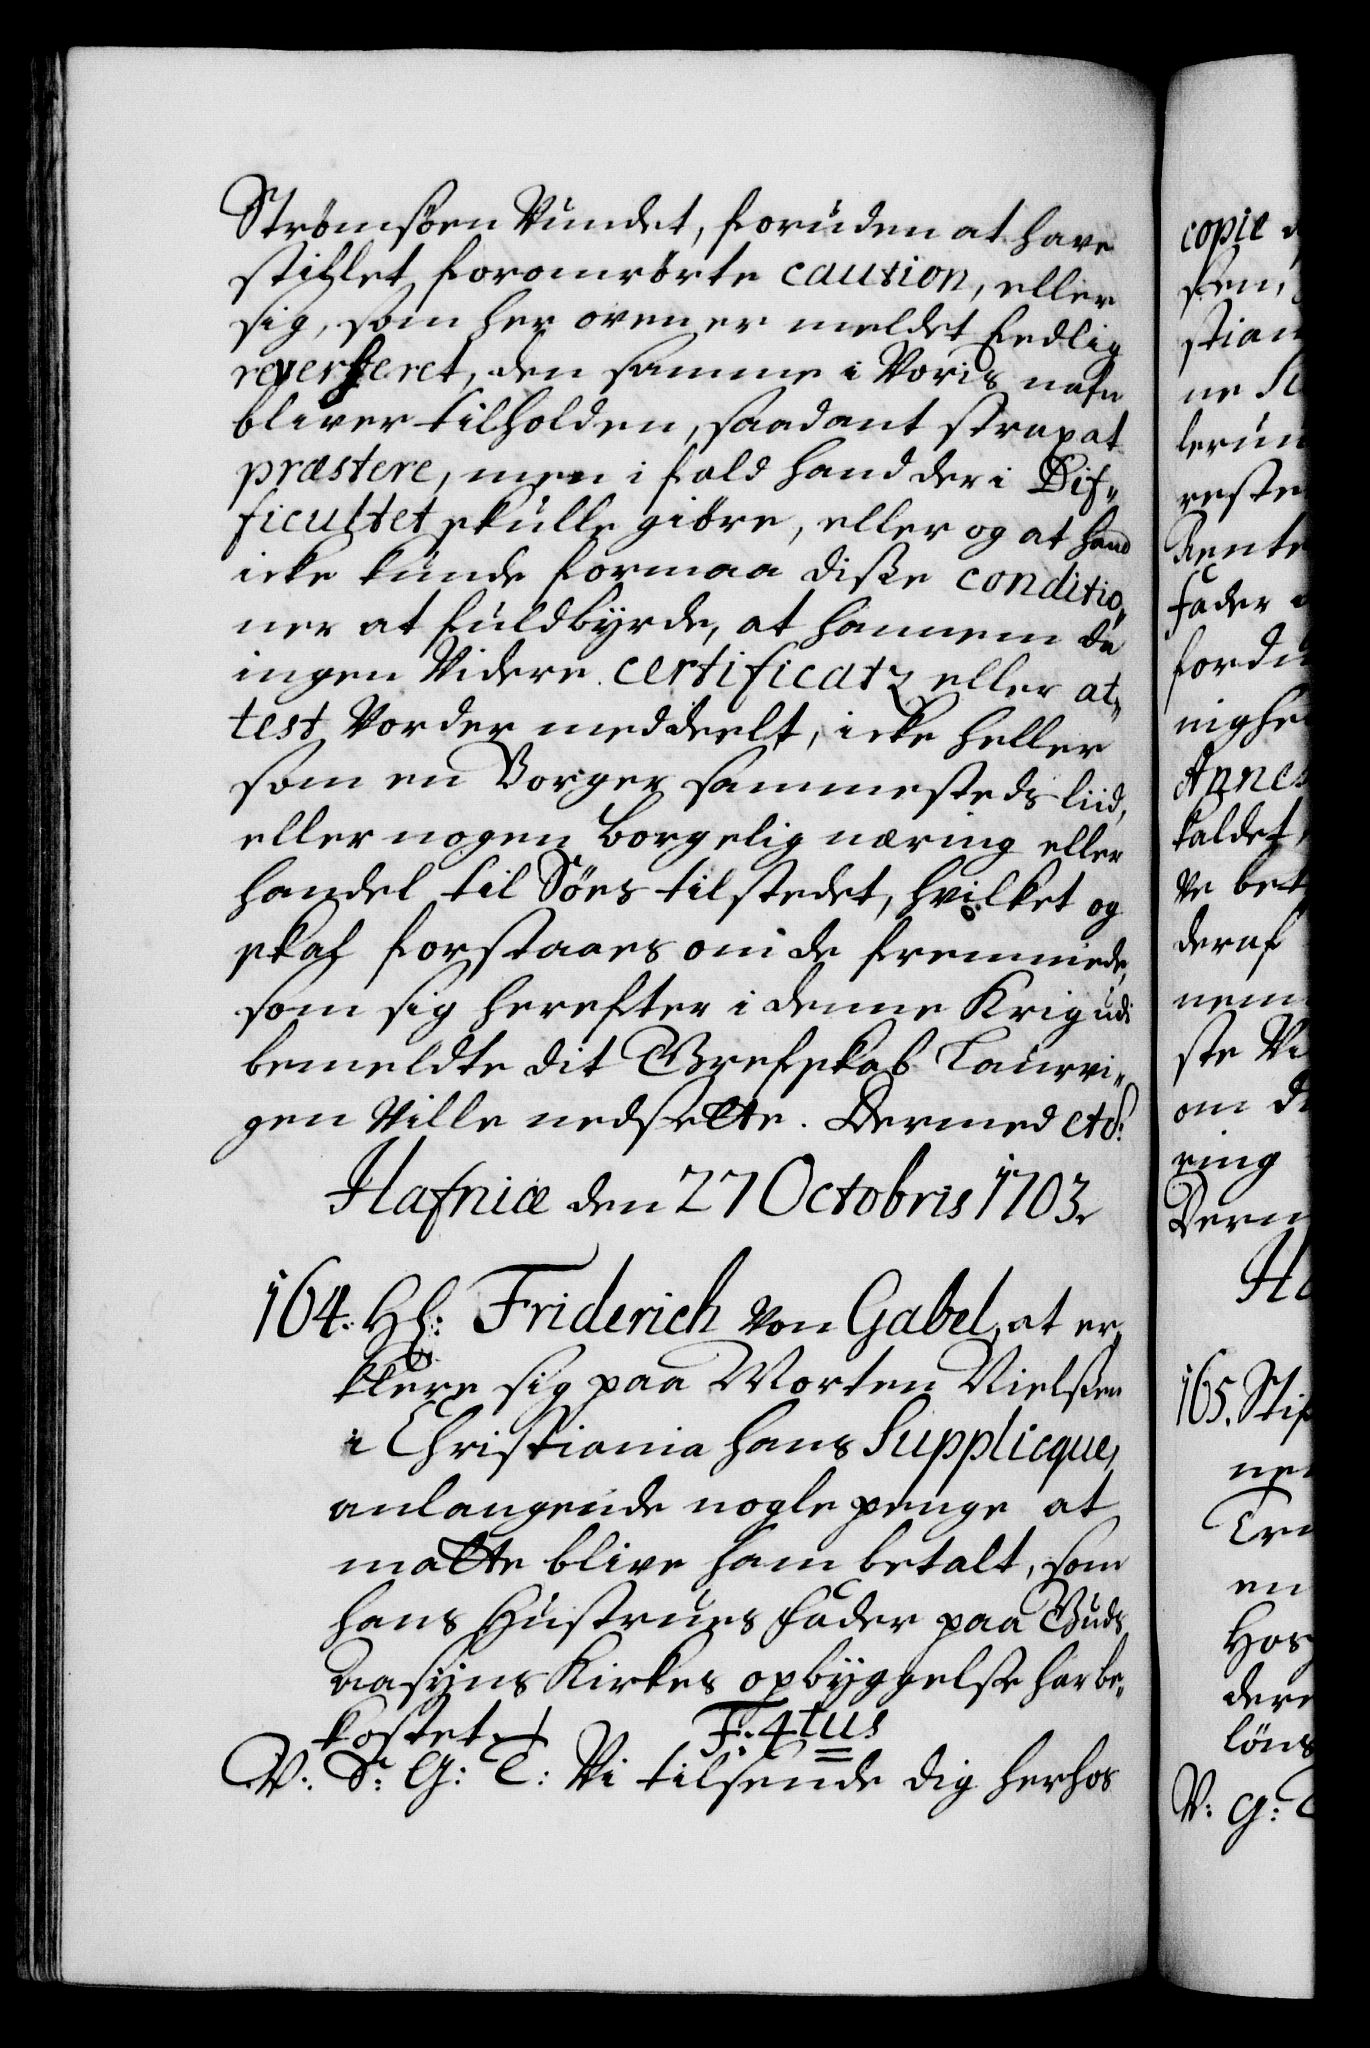 Strömsöen Vundet, foruden at have
stillet forommrörte caution, eller
sig, som her oven er meldet Eedlig
reverseret, den samme i Voris nafn
bliver tilholden, saadant strax at
præstere, men i fald hand der i Dif-
ficultet skulle giöre, eller og at hand
icke kunde formaa diße conditio-
ner at fuldbyrde, at hannem da
ingen Videre certificatz eller at-
test Vorder meddeelt, icke heller
som en Borger sammesteds liid,
eller nogen borgelig næring eller
handel til Söes tilstedet, hvilket og
skal forstaaes om de fremmede,
som sig herefter i denne Krig udi
bemeldte dit Grefskab Laurvi-
gen Ville nedsette. Dermed etc:
Hafniæ den 27 Octobris 1703.
164. Hl: Friderich von Gabel, at er-
klere sig paa Morten Nielßen
i Christiania hans Supplicque,
anlangende nogle penge at
matte blive ham betalt, som
hans Hustrues fader paa Guds-
aasyns Kirkes opbyggelse har be-
kostet. F. 4tus
V: S: G: T: Vi tilsende dig herhos
copie
sen,
stian
ne
lerun
reste
Rente
fader
ford
nighe
Agnes
kaldet,
ve bet
deraf
nem
ste Vi
om
ring
Derm
Ha
165. Stif
en
Hos
dere
löns
V: G: T